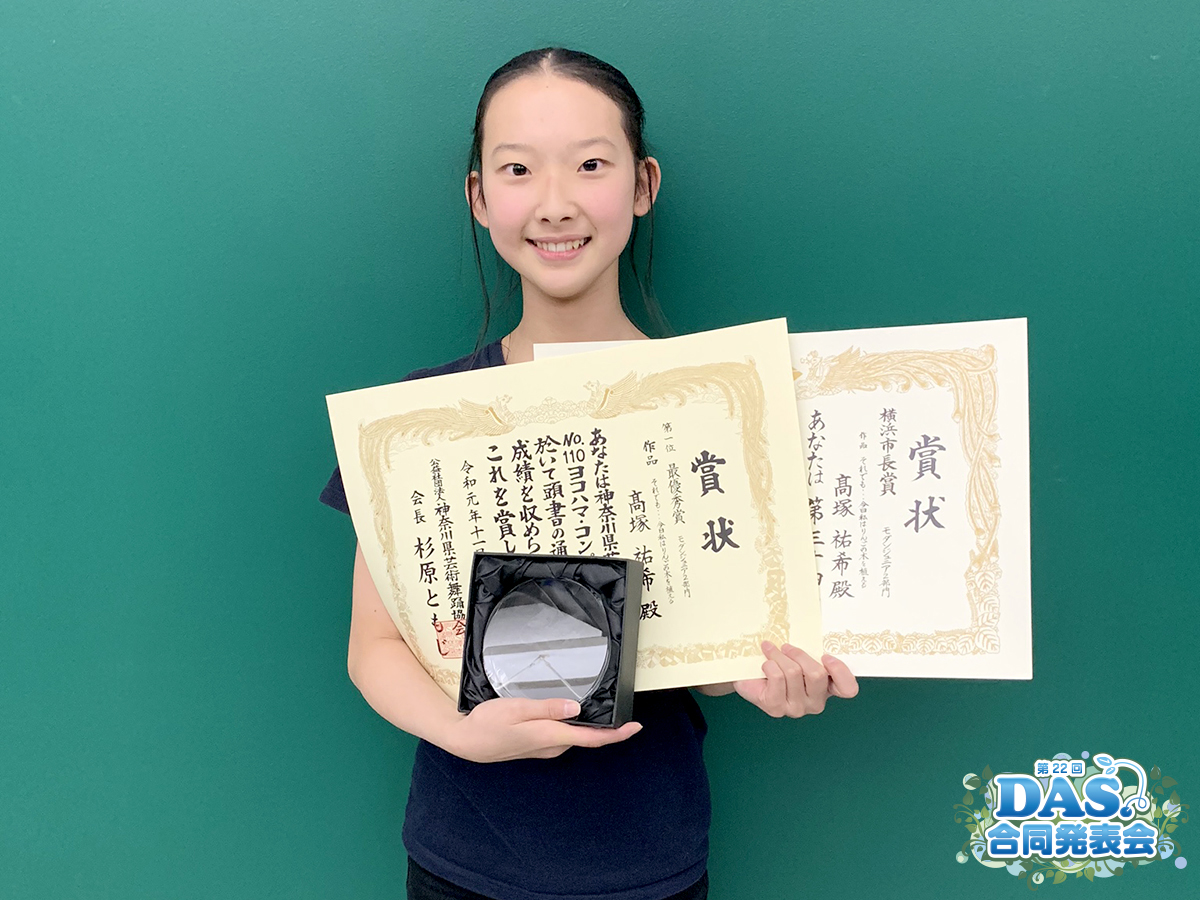 賞状
第一位 最優秀賞 モダンジュニア2部門
作品 それでも…今日私はりんごの木を植える
髙塚 祐希殿
あなたは神奈川県芸
No.110ヨコハマ・コンペ
於いて頭書の通
成績を収めら
これを賞し
令和元年十一
公益社団法人 神奈川県芸術舞踊協会
会長 杉原ともじ
賞状
横浜市長賞 モダンジュニア2部門
作品 それでも…今日私はりんごの木を植える
髙塚 祐希殿
あなたは第三十四
第22回
DAS.
合同発表会